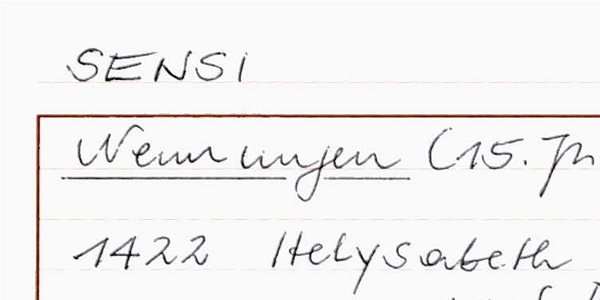 SENSI
(15. Jh
1422 Helysabeth